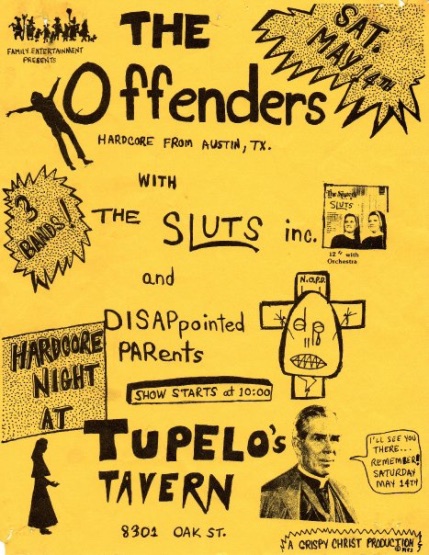 FAMILY ENTERTAINMENT
PRESENTS
THE
Offenders
SAT.
MAY 14TH
HARDCORE FROM AUSTIN, TX.
3
BANDS!
WITH
THE SLUTS inc.
SLUTS
12" with
Orchestra
and
DISAPpointed
PARents
N.O.P.D.
HARDCORE
NIGHT
AT
SHOW STARTS at 10:00
TUPELO's
TAVERN
8301 OAK ST.
I'LL SEE YOU
THERE...
REMEMBER!
SATURDAY
MAY 14TH
A CRISPY CHRIST PRODUCTION